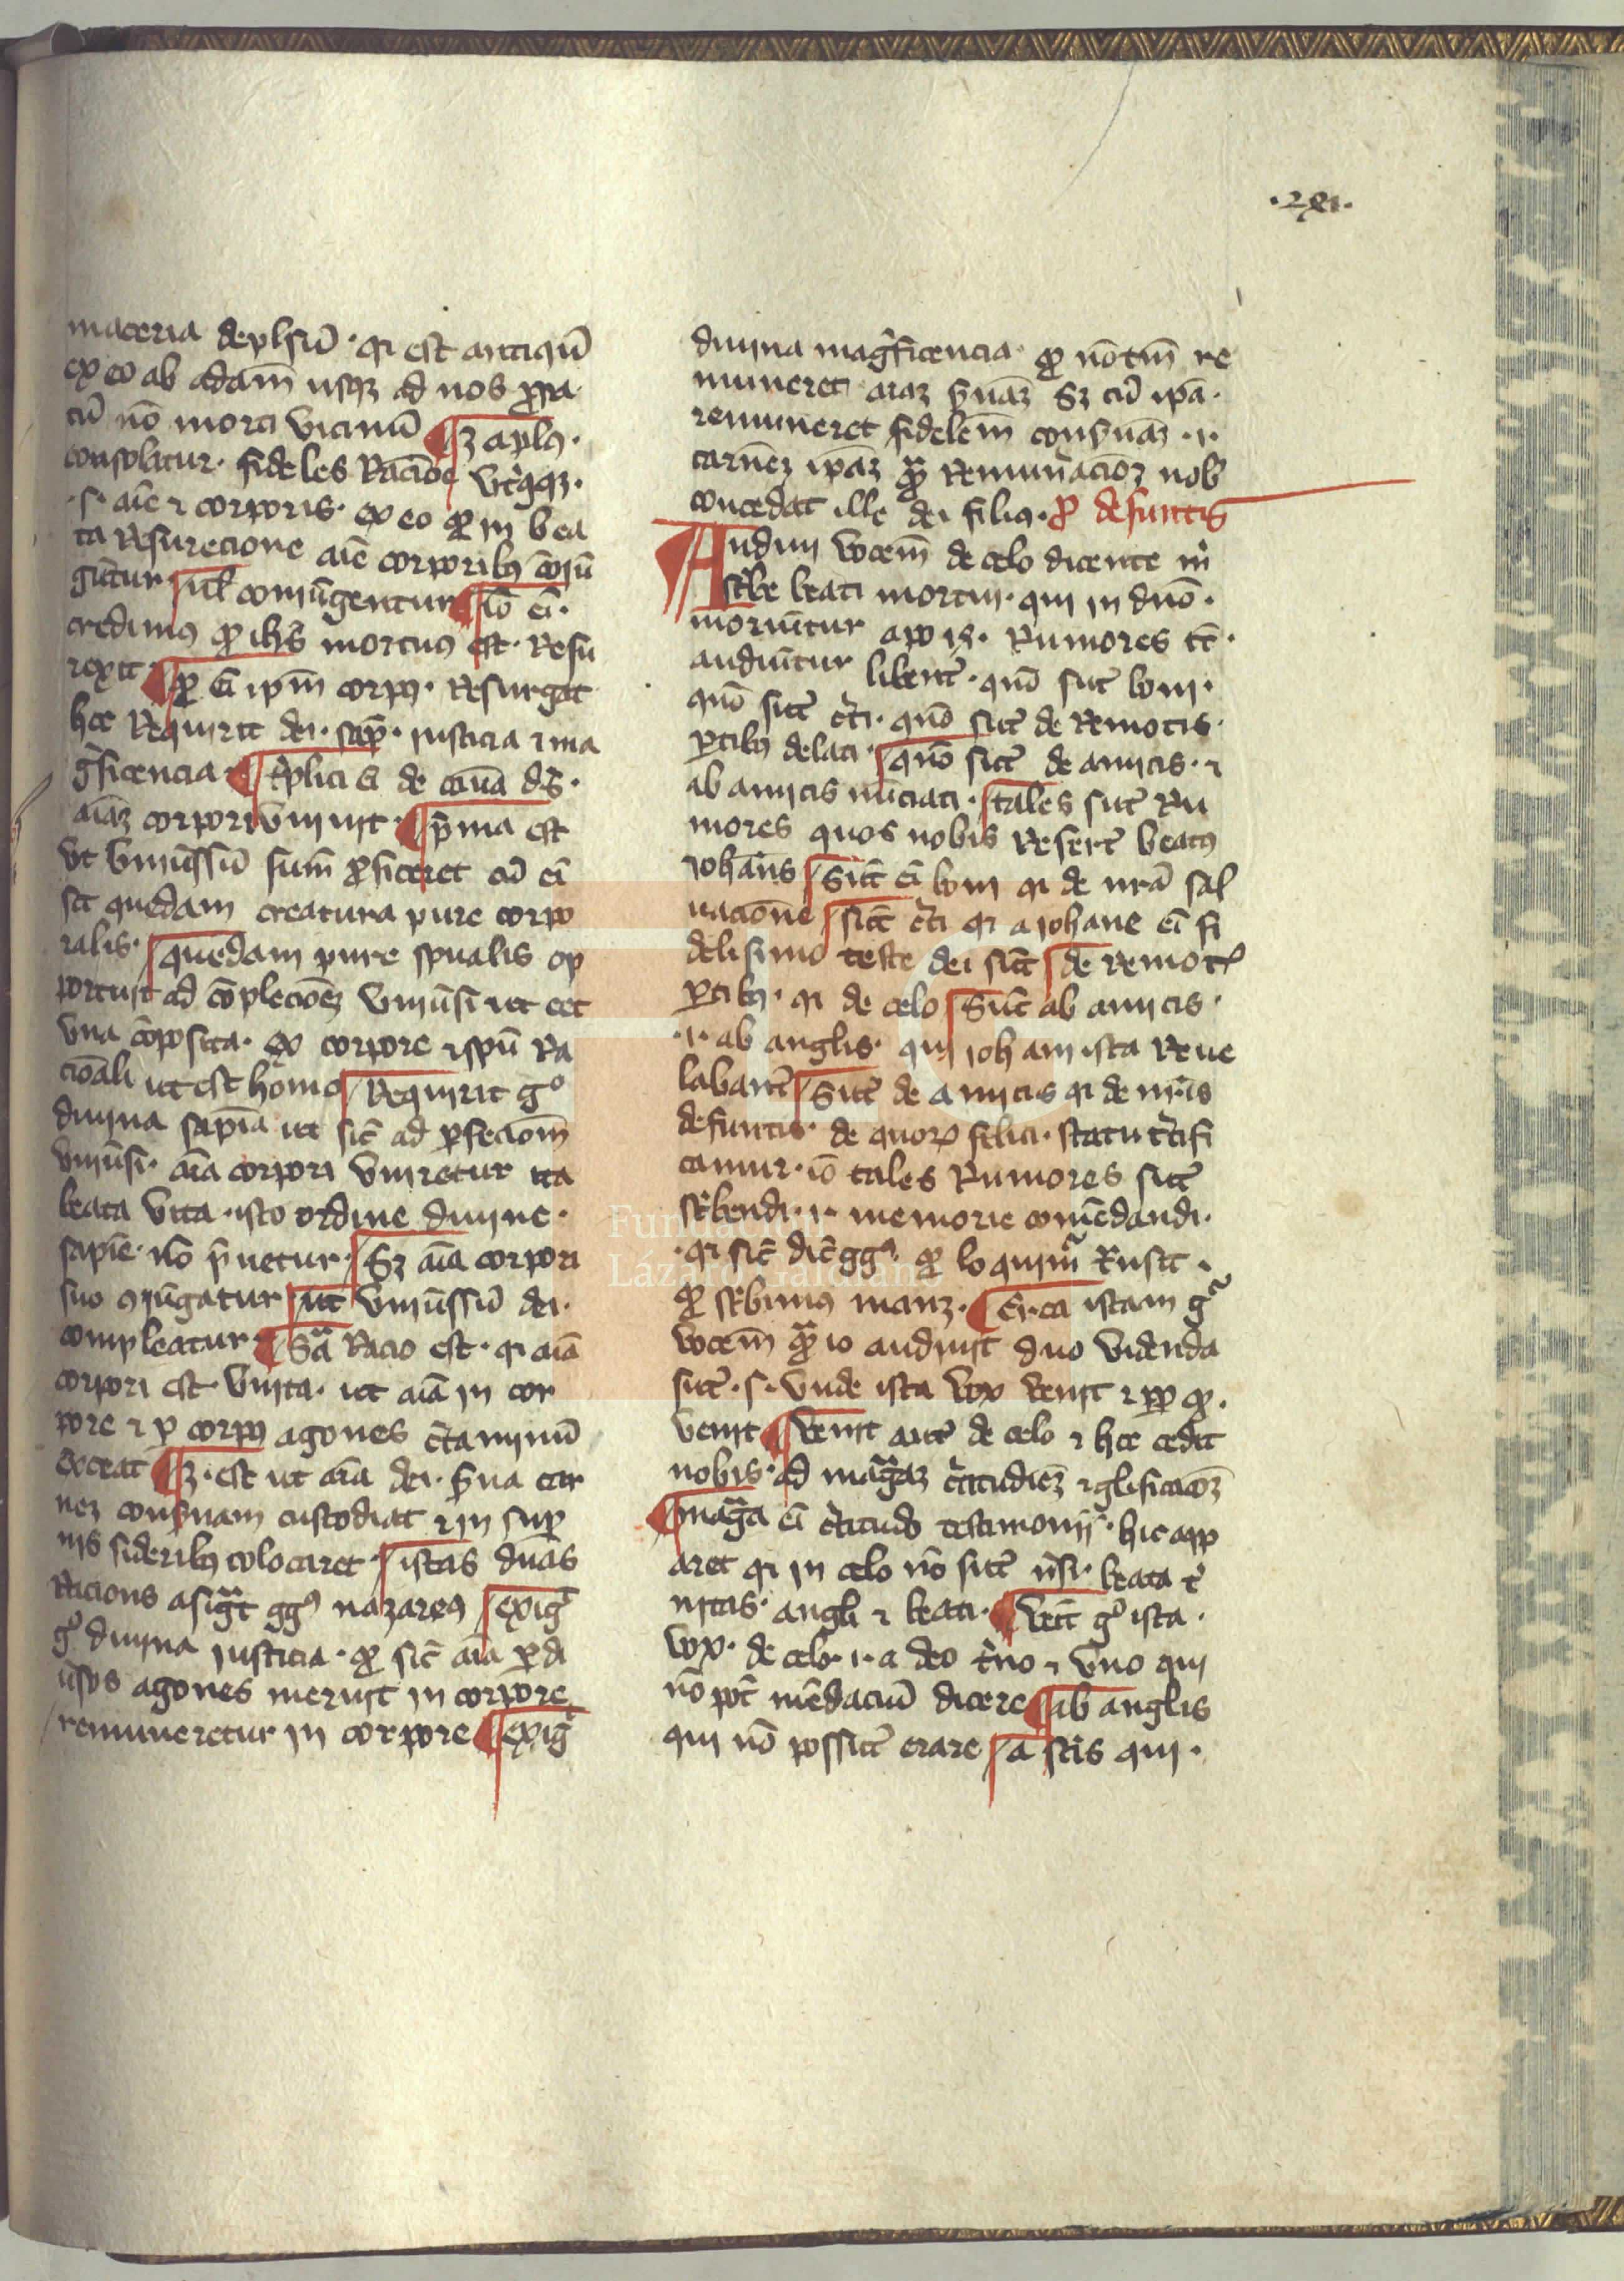 ·xxi·
maceria depulsiū · qr est antiqū
ex eo ab adam̄ usqȝ ad nos
cū nō morti vicinū Sȝ apl̄s ·
consolatur · fideles racione vt̾qȝ ·
·s· aīe ⁊ corporis · ex eo qd in bea
ta resurecione aīe corporibȝ cōiū
gūtur ul̄ coniūgentur iō ei ·
credimus qd ihs̄ mortuus est · resu
rexit qd ei ipm̄ corpus · resurgat
hec requirit dei · sap̄ · iusticia ⁊ ma
gn̄ficencia t̾plici ei de cauā ds̄ ·
aīaȝ corpori vniuit · p̄ma est
vt vniūssū suum̄ p̄ficeret cū ei
sit quedam creatura pure corpo
ralis · quedam pure spualis op
portuit ad cōplecōeȝ vniūsi ut eēt
vna cōposita · ex corpore ⁊ spū ra
cioali ut est homo Requirit g°
diuina sapīa ut sic̄ ad p̄feciom̄
vniūsi · aīa corpori vniretur ita
beata vita · isto ordine diuine ·
sapīe · nō p̄uetur · Sȝ aīa corpori
suo ꝯiūgatur ut vniūssū dei ·
compleatur · S̄a racio est · qr aīa
corpori est vnita · ut aīa in cor
pore ⁊ p corpus agones c̾taminū
exceat ȝ · est ut aīa dei · s̄ua car
neȝ cons̄uam custodiat ⁊ in sup̄
nis sideribȝ colocaret · istas duās
racions asigᷓt ggꝰ nazareus exigᷓ
g° diuina iusticia · qd sic̄ aīa p̄ di
ūsos agones meruit in corpore
remuneretur in corpore exigᷓ
diuina magn̄ficencia · qd nōtm̄ re
muneret aīaȝ s̄uāȝ Sȝ cū ipa ·
remuneret fidelem̄ cons̄uāȝ · i ·
carnēȝ ipāȝ qᷓ remun̾acioȝ nob̄
concedat ille dei filius · p̄ defuntis
Audiui vocem̄ de celo dicente m̄
sc̾be beati mortui · qui in dnō ·
moriūtur apo 14 · Rumores tc̄ ·
audiūtur libent̾ · qn̄o sūt boni ·
qn̄o sūt c̾ti · qn̄o sūt de remotis ·
p̄tibȝ delati · qn̄o sūt de amicis · ⁊
ab amicis nūciati · tales sūt ru
mores quos nobis refert beatus
iohan̄s Sūt ei boni qr de nr̄a sal
uacione sūt c̾ti qr a iohane ei fi
delisimo teste dei sūt de remotis
p̄tibȝ · qr de celo Sūt ab amicis ·
· i · ab anglis · qui ioh̄ani ista reue
labant̾ Sūt de amicis qr de nr̄is
defuntis · de quorȝ felici · statu c̾tifi
camur · iō tales rumores sūt
sc̾bendi · i · memorie comēdandi ·
· qr sic̄ dic̄ ggꝰ · qd loquimᷓ t̾nsit ·
qd sc̾bimus manȝ · Cir̄ca istam gᷓ
vocem̄ qᷓ io audiuit duo videnda
sūt · s · vnde ista vox venit ⁊ pp qd ·
venit Venit aut̾ de celo ⁊ hec cedit
nobis · ad magᷓȝ c̾titudīeȝ ⁊ gl̄ificacioȝ
magᷓ ei c̾titudo testimonii · hic app
aret qr in celo nō sūt nisi · beata t̾
nitas · angli ⁊ beati · Vēit g° ista ·
vox · de celo · i · a deo t̾no ⁊ vno qui
nō pōt mēdaciū dicere ab anglis
qui nō possūt erare a sc̄is qui ·